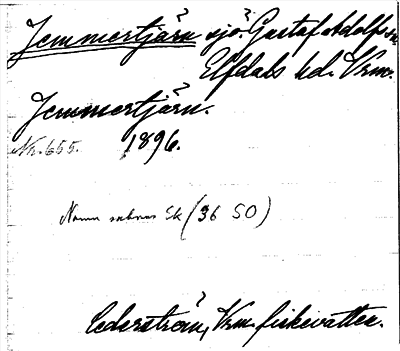 Jemmertjärn sjö. Gustaf Adolfs sn.
Elfdals hd. Vrm.
Jemmertjärn.
Nr. 655. 1896.
Namn saknas Ek (36 50)
Cederström, Vrm. fiskevatten.